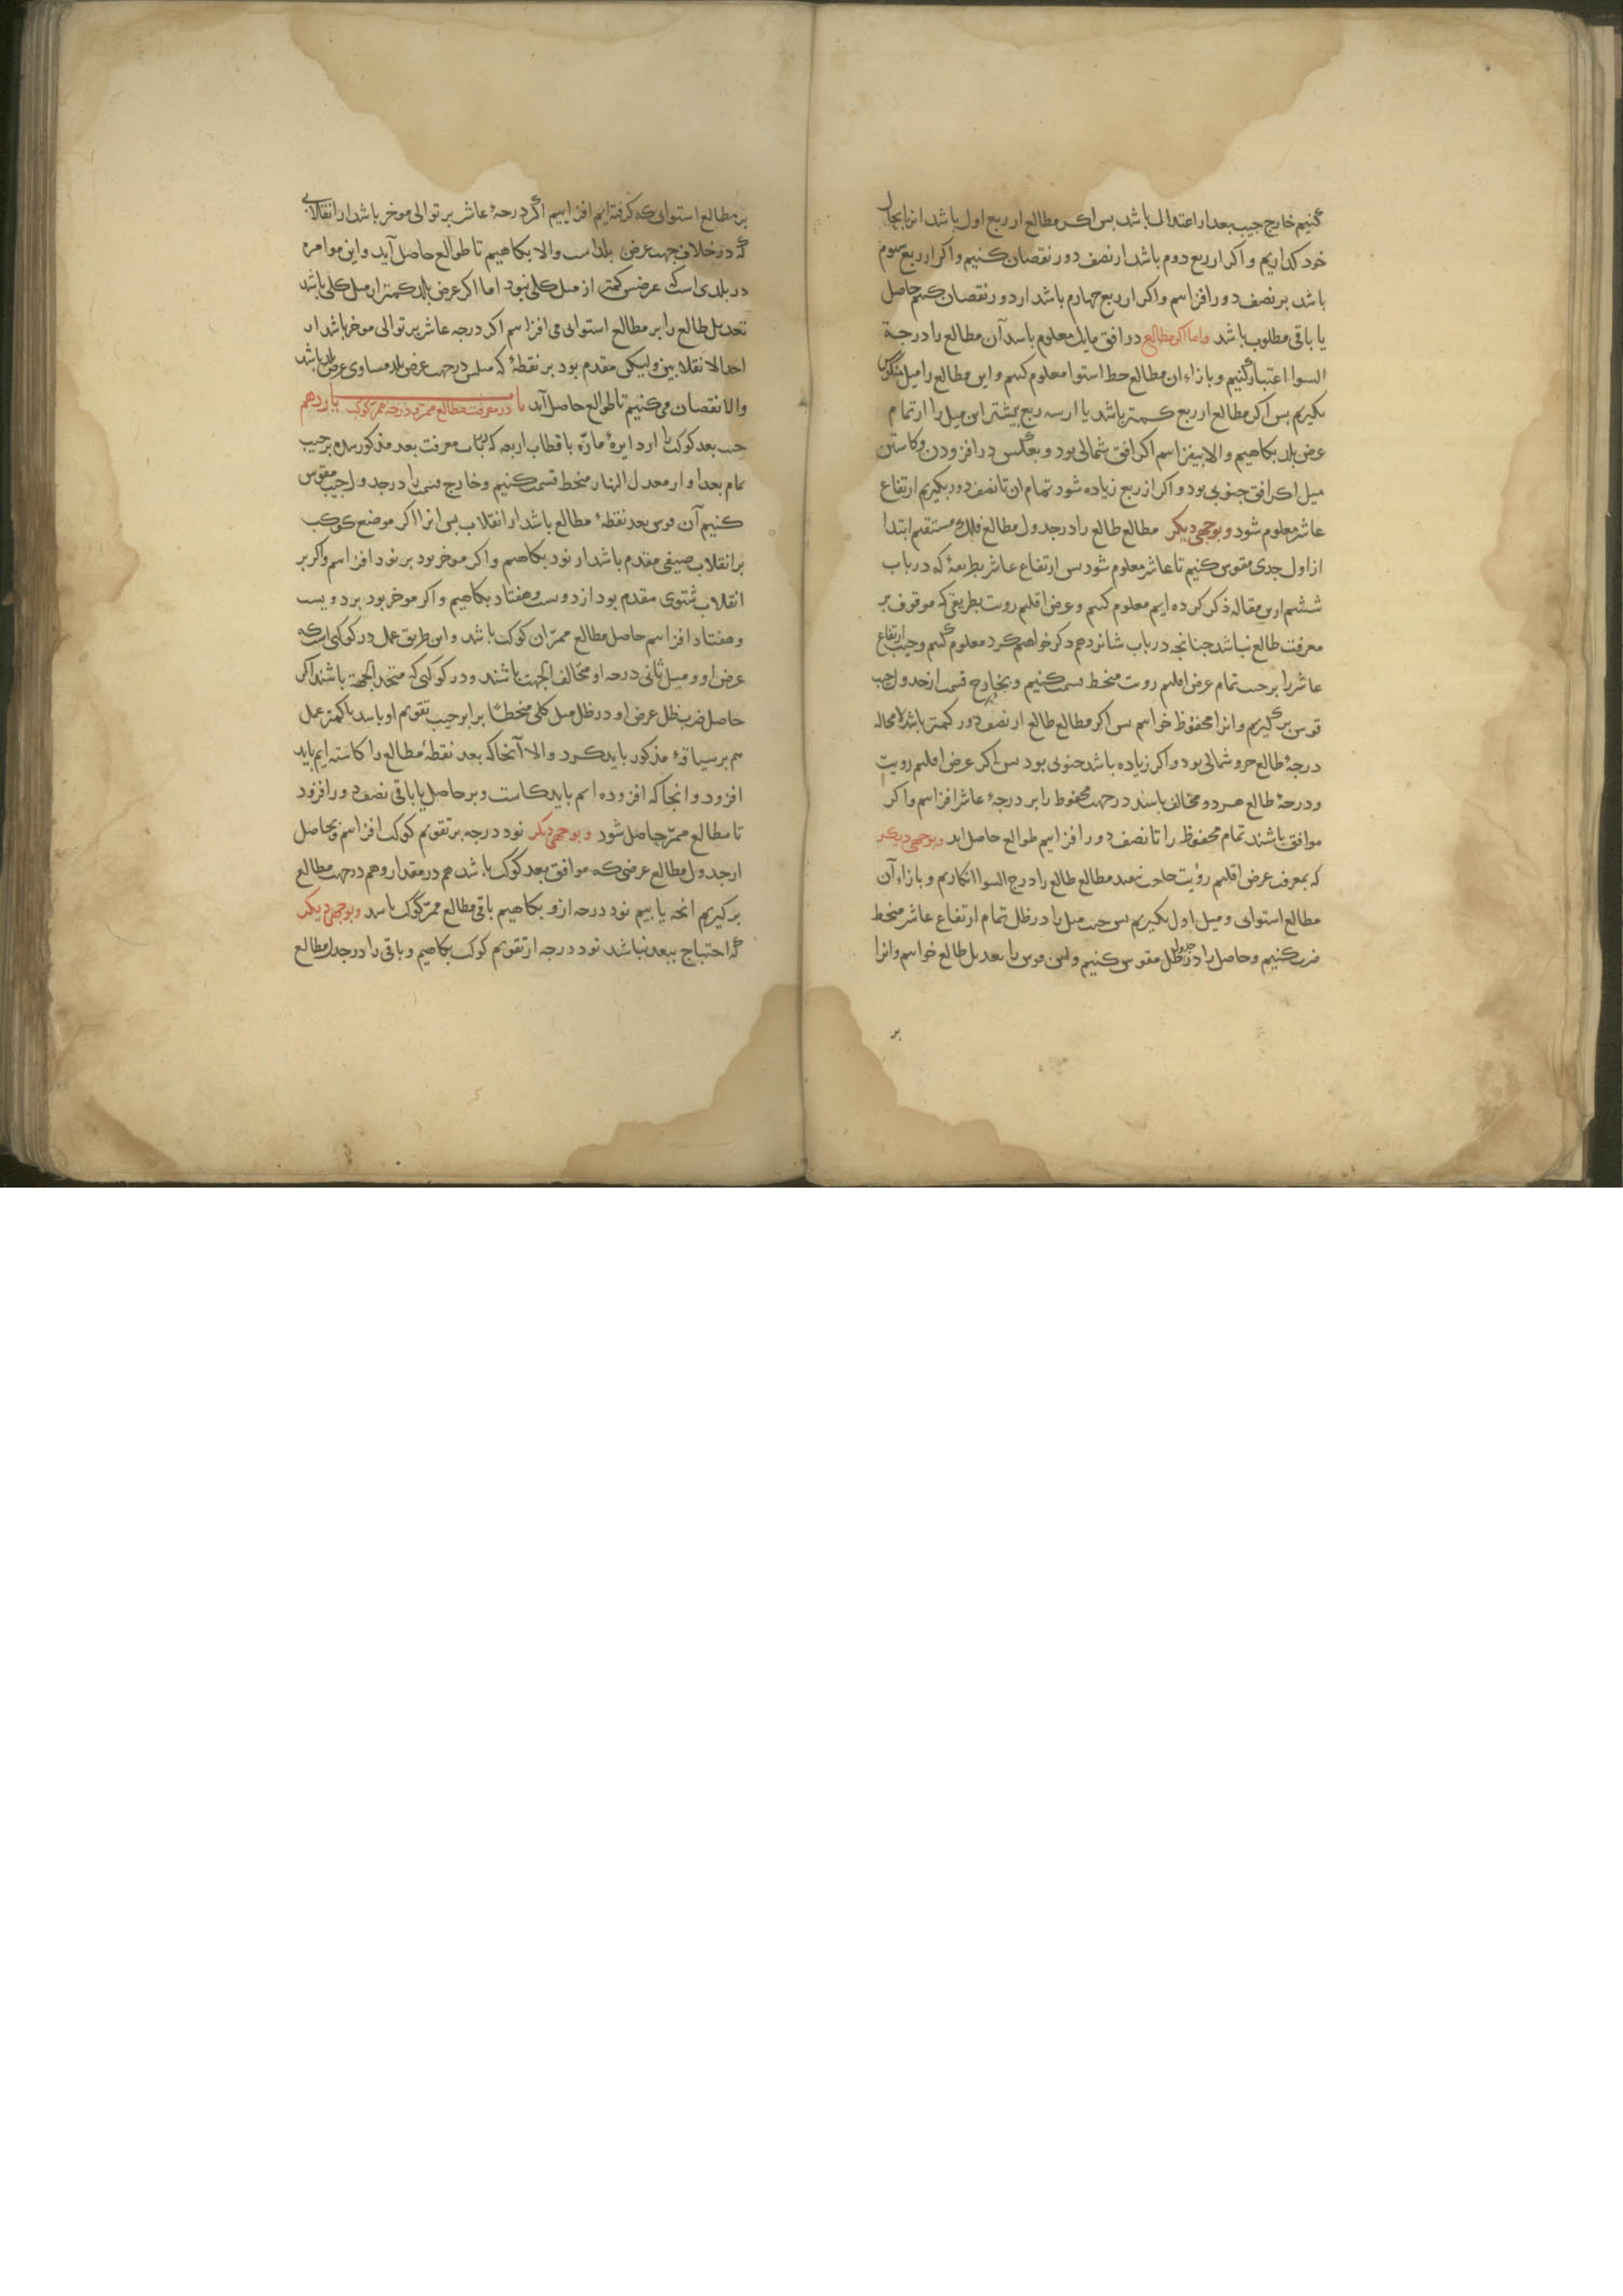 کنیم خارج جیب بعد از اعتدال باشد بس اکر مطالع از ربع اول باشد انرا بحال
خود کذاریم و اکر از ربع دوم باشد از نصف دور نقصان کنیم و اکر از ربع سوم
باشد بر نصف دور افزاییم و اکر از ربع چهارم باشد از دور نقصان کنیم حاصل
یا باقی مطلوب باشد واما اکر مطالع در افق مایل معلوم باشد آن مطالع را درجة
السوا اعتبار کنیم و بازاء ان مطالع خط استوا معلوم کنیم و این مطالع را میل منکوس
بکیریم بس اکر مطالع از ربع کمتر باشد یا از سه ربع بیشتر این میل را از تمام
عرض بلد بکاهیم و الا بیفزاییم اکر افق شمالی بود و بعکس در افزودن و کاستن
میل اکر افق جنوبی بود و اکر از ربع زیاده شود تمام ان تا نصف دور بکیریم ارتفاع
عاشر معلوم شود و بوجهی دیکر مطالع طالع را در جدول مطالع فلک مستقیم ابتدا
از اول جدی مقوس کنیم تا عاشر معلوم شود بس ارتفاع عاشر بطریقهٔ که در باب
ششم ازین مقاله ذکر کرده ایم معلوم کنیم و عرض اقلیم رویت بطریقی که موقوف بر
معرفت طالع نباشد جنانجه در باب شانزدهم ذکر خواهیم کرد معلوم کنیم و جیب ارتفاع
عاشر را بر جیب تمام عرض اقلیم رویت منحط قسمت کنیم و بخارج قسمت از جدول جیب
قوس بر کیریم و انرا محفوظ خوانیم بس اکر مطالع طالع از نصف دور کمتر باشد لا محاله
درجهٔ طالع جزو شمالی بود و اکر زیاده باشد جنوبی بود بس اکر عرض اقلیم رویت
و درجهٔ طالع هردو مخالف باشند در جهت محفوظ را بر درجهٔ عاشر افزاییم و اکر
موافق باشند تمام محفوظ را تا نصف دور افزاییم طوالع حاصل اید و بوجهی دیکر
که بمعرفت عرض اقلیم رؤیت حاجت نیفتد مطالع طالع را درج السوا انکاریم و بازاء آن
مطالع استوایی و میل اول بکیریم بس جیب میل را در ظل تمام ارتفاع عاشر منحط
ضرب کنیم و حاصل را در جدول ظل مقوس کنیم و این قوس را تعدیل طالع خوانیم و انرا
بر
بر مطالع استوایی که کرفته ایم افزاییم اکر درجهٔ عاشر بر توالی موخر باشد از انقلابی
که در خلاف جهت عرض بلد است والا بکاهیم تا طوالع حاصل آید و این موامره
در بلدی است که عرضش کمتر از میل کلی نبود اما اکر عرض بلد کمتر از میل کلی باشد
تعدیل طالع را بر مطالع استوایی می افزاییم اکر درجه عاشر بر توالی موخر باشد از
احد الانقلابین و لیکن مقدم بود بر نقطهٔ که میلش در جهت عرض بلد مساوی عرض بلد باشد
والا نقصان می کنیم تا طوالع حاصل آید باب یازدهم در معرفت مطالع ممر و درجه ممر کوکب
جیب بعد کوکب را از دایرهٔ مارّه باقطاب اربعه که در باب معرفت بعد مذکور شده بر جیب
تمام بعد او از معدل النهار منحط قسمت کنیم و خارج قسمت را در جدول جیب مقوس
کنیم آن قوس بعد نقطهٔ مطالع باشد از انقلاب بس انرا اکر موضع کوکب
بر انقلاب صیفی مقدم باشد از نود بکاهیم و اکر موخر بود بر نود افزاییم و اکر بر
انقلاب شتوی مقدم بود از دویست و هفتاد بکاهیم و اکر موخر بود بر دویست
و هفتاد افزاییم حاصل مطالع ممرّ ان کوکب باشد و این طریق عمل در کوکبی است که
عرض او و میل ثانی درجه او مخالف الجهت باشند و در کوکبی که متحد الجهة باشند اکر
حاصل ضرب ظل عرض او در ظل میل کلی منحطا برابر جیب تقویم او باشد یا کمتر عمل
هم بر سیاقهٔ مذکور باید کرد والا آنجا که بعد نقطهٔ مطالع را کاسته ایم باید
افزود و انجا که افزوده ایم باید کاست و بر حاصل یا باقی نصف دور افزود
تا مطالع ممرّ حاصل شود و بوجهی دیکر نود درجه بر تقویم کوکب افزاییم و بحاصل
از جدول مطالع عرضی که موافق بعد کوکب باشد هم در مقدار و هم در جهت مطالع
بر کیریم انجه یابیم نود درجه ازو بکاهیم باقی مطالع ممرّ کوکب باشد و بوجهی دیکر
که احتیاج ببعد نباشد نود درجه از تقویم کوکب بکاهیم و باقی را در جدول مطالع